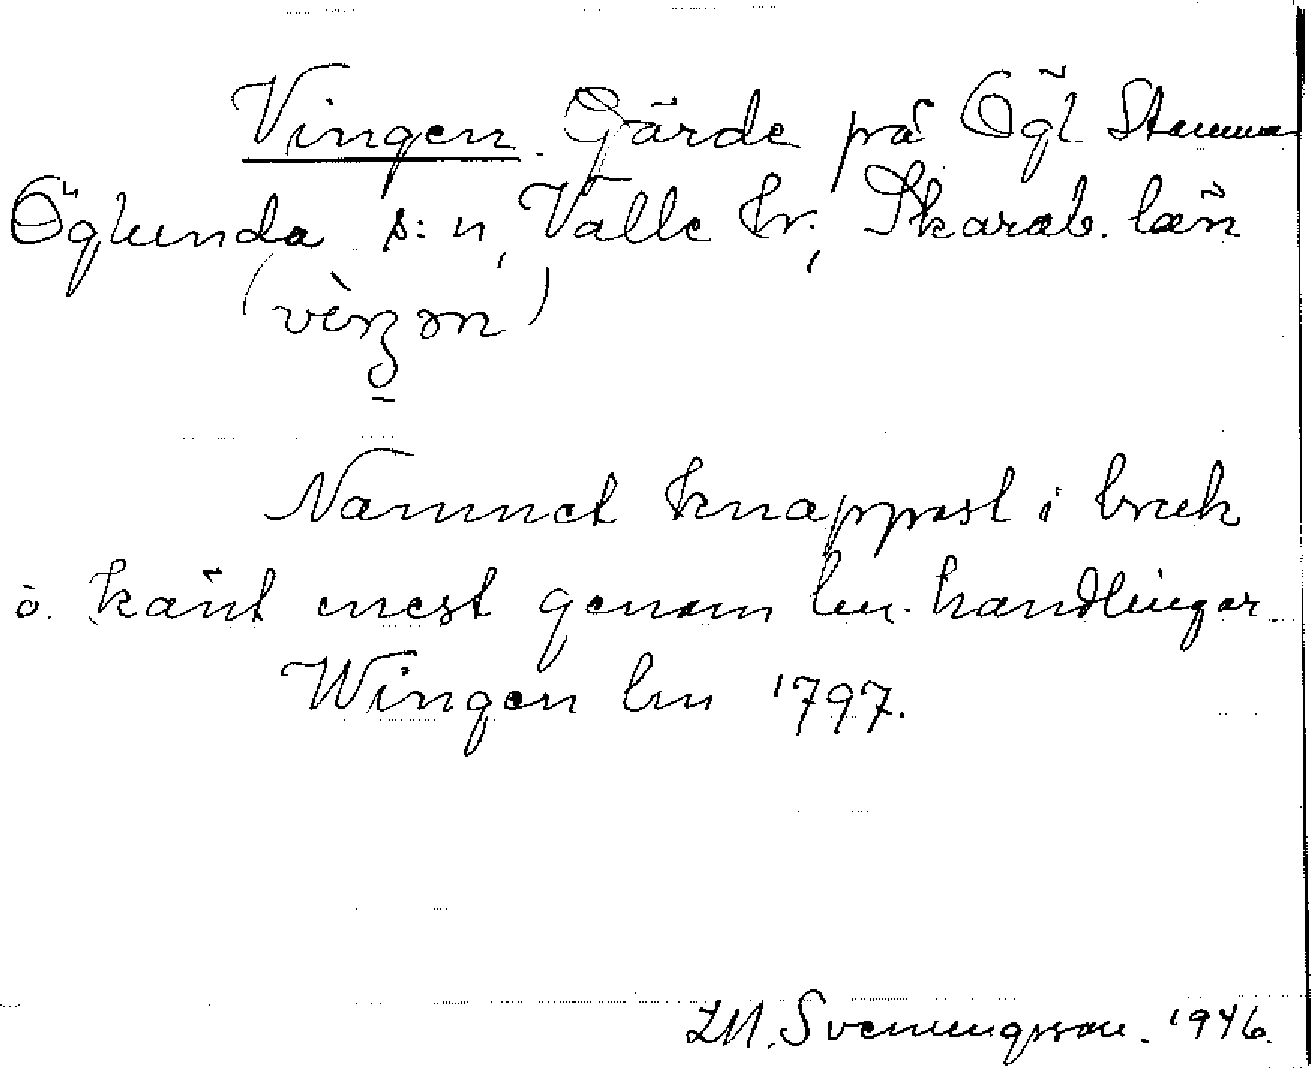 Vingen. Gärde på Ögl Stemma
Öglunda s:n, Valle hr, Skarab. län
(vèŋən)
Namnet knappast i bruk
o. känt mest genom lm. handlingar.
Wingen lm 1797.
LM. Svenungsson. 1946.